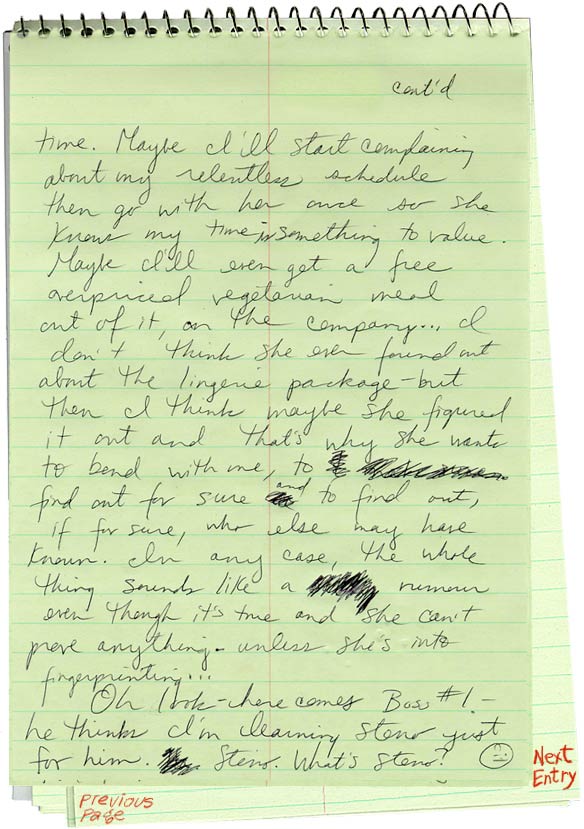 cont'd
time. Maybe I'll start complaining
about my relentless schedule
then go with her once so she
knows my time is something to value.
Maybe I'll even get a free
overpriced vegetarian meal
out of it, on the company... I
don't think she ever found out
about the lingerie package - but
then I think maybe she figured
it out and that's why she wants
to bond with me, to
find out for sure and to find out,
if for sure, who else may have
known. In any case, the whole
thing sounds like a rumour
even though it's true and she can't
prove anything - unless she's into
fingerprinting...
Oh look - here comes Boss #1 -
he thinks I'm learning steno just
for him. Steno. What's steno?
Next
Entry
Previous
Page